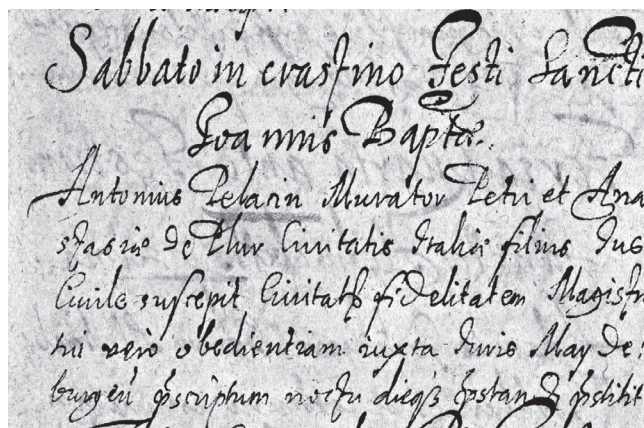 Sabbato in crastino Festi Sancti
Joannis Baptæ.
Antonius Pelacin Murator Petri et Ana
stasiæ de Plur Civitatis Italiæ filius Jus
Civile suscepit Civitati fidelitatem Magistra
tui vero obedientiam iuxta Juris May de
burgeñ pscriptum noctu dieq pstandā pstitit